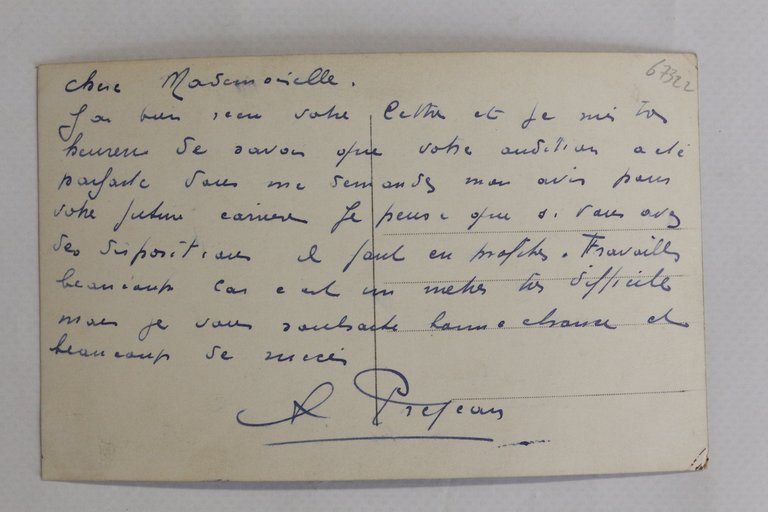 67322
Chere Mademoiselle.
J'ai bien recu votre lettre et je suis tres
heureux de savoir que votre audition a été
parfaite vous me demandez mon avis pour
votre future carriere je pense que si vous avez
des dispositions il faut en profiter. Travaillez
beaucoup car c'est un metier tres difficile
mais je vous souhaite bonne chance et
beaucoup de succès
A. Prejean